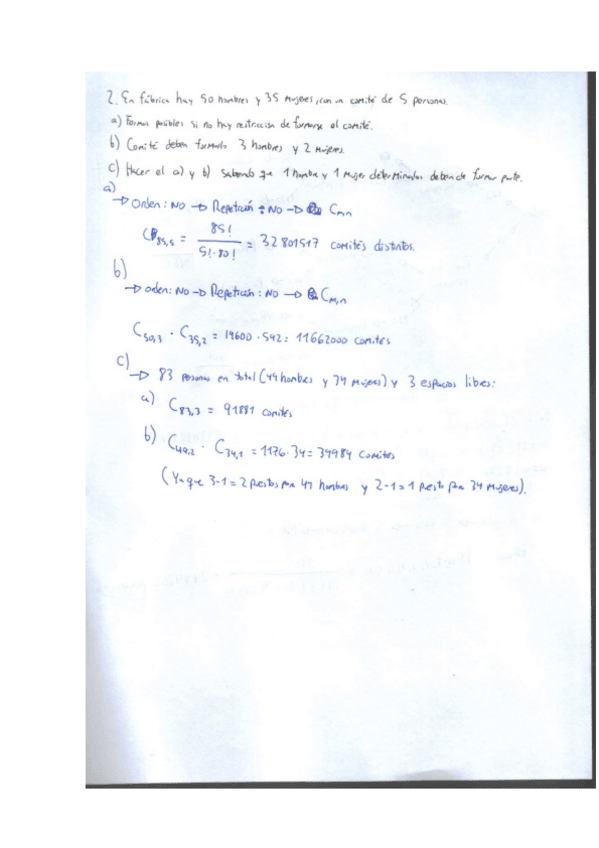 2. En fábrica hay 50 hombres y 35 mujeres, con un comité de 5 personas.
a) Formas posibles si no hay restricción de formarse el comité.
b) Comité deben formarlo 3 hombres y 2 mujeres.
c) Hacer el a) y b) sabiendo que 1 hombre y 1 mujer determinados deben de formar parte.
a)
→ Orden: NO → Repetición: NO → Cm,n
C85,5 = 85! / 5!·80! = 32801517 comités distintos.
b)
→ orden: NO → Repetición: NO → Cm,n
C50,3 · C35,2 = 19600 · 595 = 11662000 comités
c)
→ 83 personas en total (49 hombres y 34 mujeres) y 3 espacios libres:
a) C83,3 = 91881 comités
b) C49,2 · C34,1 = 1176·34 = 39984 comités
(Ya que 3-1=2 puestos para 49 hombres y 2-1=1 puesto para 34 mujeres).